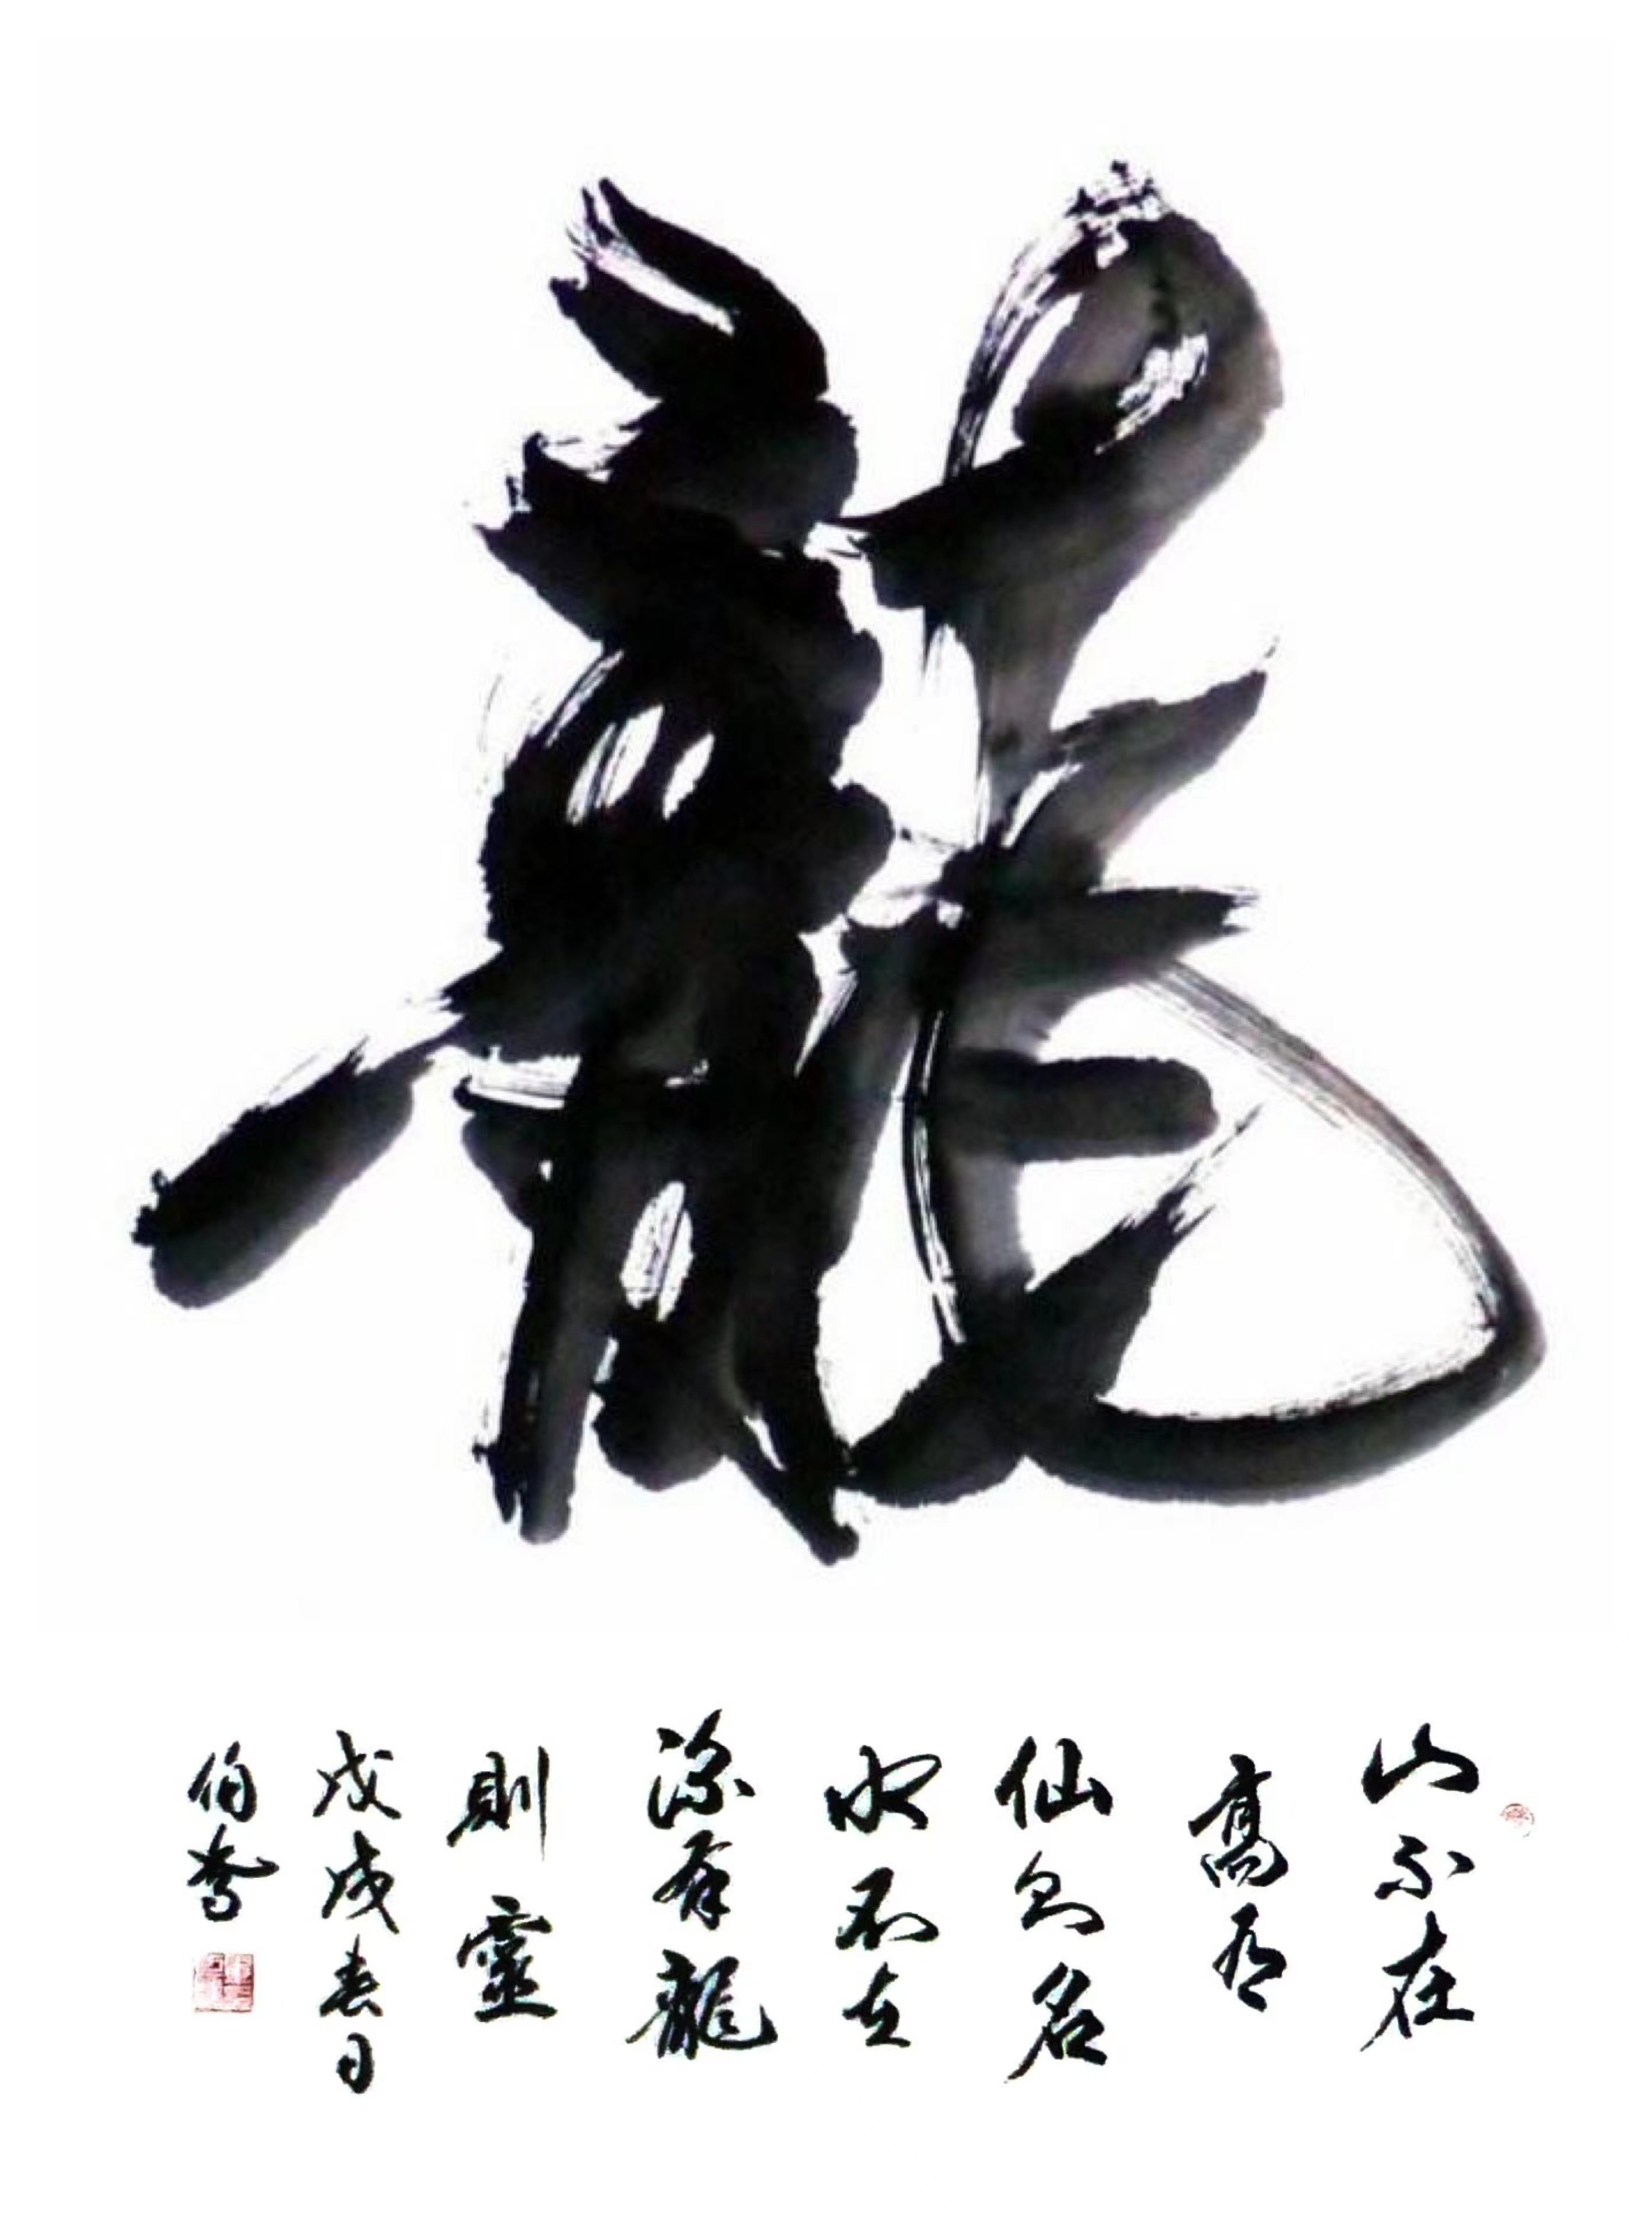 龍
山不在
高有
仙則名
水不在
深有龍
則靈
戊戌春日
伯鸞